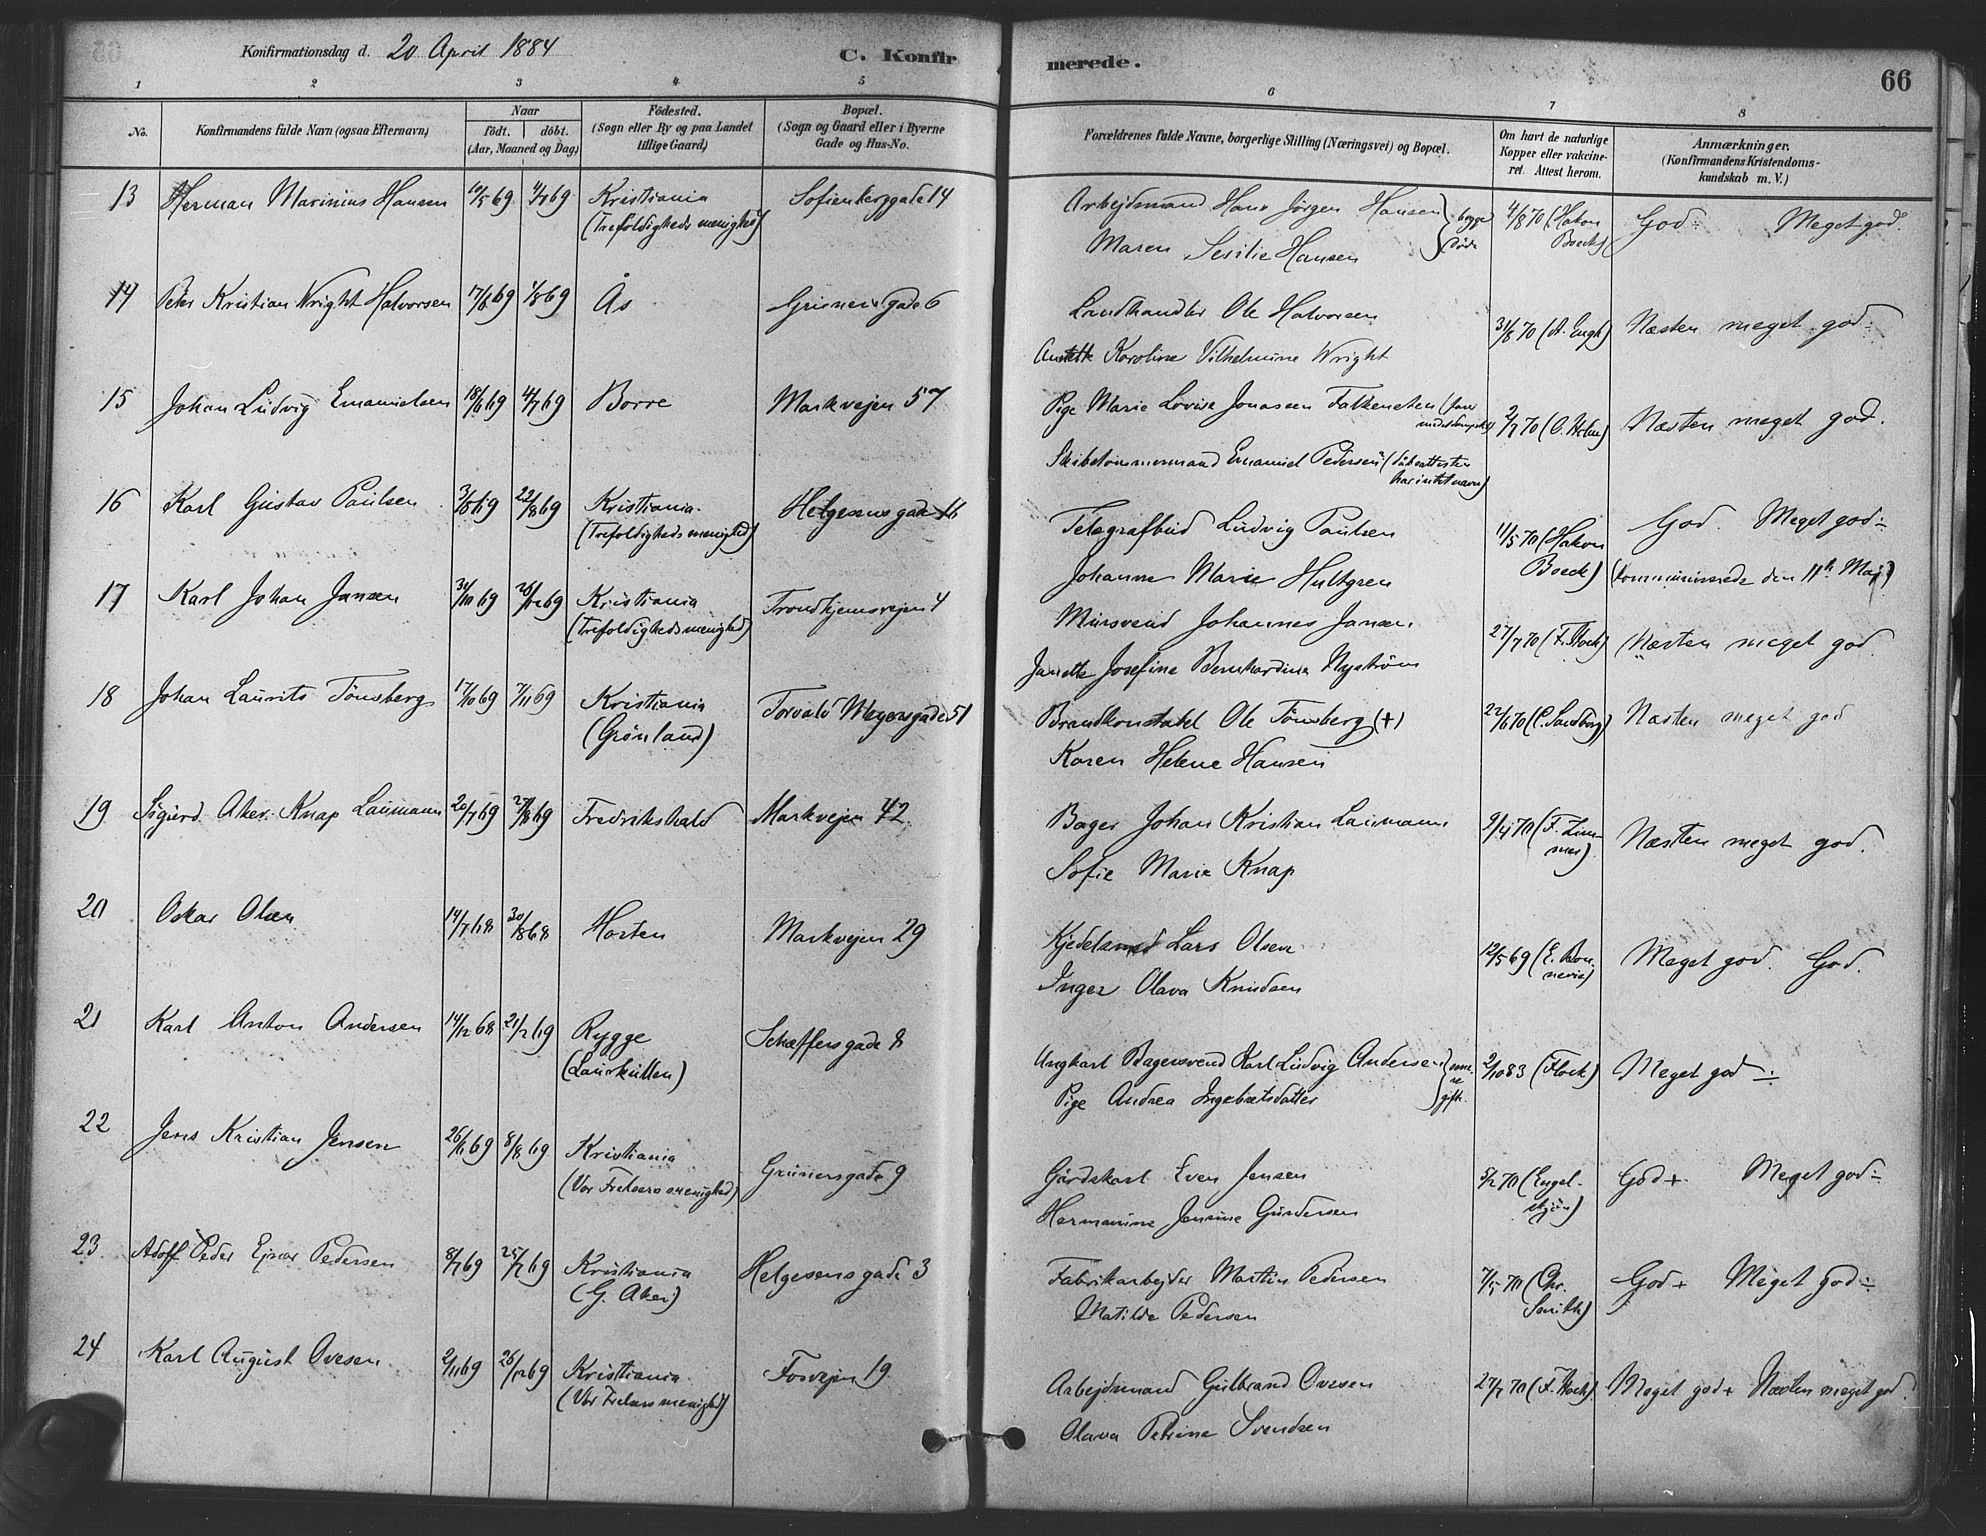 Konfirmationsdag d. 20 April 1884
C. Konfirmerede.
66
1 2 3 4 5 6 7 8
No.
Konfirmandens fulde Navn (ogsaa Efternavn)
Naar
født. døbt.
(Aar, Maaned og Dag)
Fødested.
(Sogn eller By og paa Landet
tillige Gaard)
Bopæl.
(Sogn og Gaard eller i Byerne
Gade og Hus-No.
Forældrenes fulde Navne, borgerlige Stilling (Næringsvei) og Bopæl.
Om havt de naturlige
Kopper eller vakcine-
ret. Attest herom.
Anmærkninger.
(Konfirmandens Kristendoms-
kundskab m. V.)
13 Herman Marinius Hansen 10/5 69 4/7 69 Kristiania Sofienberggade 14
(Trefoldigheds menighed)
Arbejdsmand Hans Jörgen Hansen } begge
Maren Sesilie Hansen } døde
4/8 70 (Hakon
Boeck)
God ÷ Meget god.
14 Peter Kristian Wright Halvorsen 17/6 69 1/8 69 Ås Grünersgade 6
Landhandler Ole Halvorsen
Anette Karoline Vilhelmine Wright
31/8 70 (A. Engh) Næsten meget god ÷
15 Johan Ludvig Emanuelsen 18/6 69 4/7 69 Borre Markvejen 57
Pige Marie Lovise Jonassen Falkensten
Skibstømmermand Emanuel Pedersen (dåbsattesten
har intet navn)
2/7 70 (O. Holm) Næsten meget god.
16 Karl Gustav Paulsen 3/6 69 22/8 69 Kristiania. Helgesensgade 16
(Trefoldigheds menighed)
Telegrafbud Ludvig Paulsen
Johanne Marie Hultgren
11/5 70 (Hakon
Boeck)
God. Meget god ÷
(kommunicerede den 11th Maj)
17 Karl Johan Jansen 31/10 69 26/12 69 Kristiania Trondhjemsvejen 4
(Trefoldigheds menighed)
Mursvend Johannes Jansen.
Janette Josefine Bernhardine Nyström
27/7 70 (F. Hock) Næsten meget god.
18 Johan Laurits Tönsberg 17/10 69 7/11 69 Kristiania Torvald Meyersgade 51
(Grönland)
Brandkonstabel Ole Tönsberg (+)
Karen Helene Hansen
22/6 70 (C. Sandberg) Næsten meget god
19 Sigurd Aker. Knap Laumann 20/7 69 27/8 69 Fredrikshald Markvejen 42.
Bager Johan Kristian Laumann
Sofie Marie Knap
9/4 70 (F. Lim-
mer)
Næsten meget god.
20 Oskar Olsen 14/7 68 30/8 68 Horten Markvejen 29
Kjedelsmed Lars Olsen
Inger Olava Knudsen
12/5 69 (E. Bon-
nevie)
Meget god. God.
21 Karl Anton Andersen 14/12 68 21/2 69 Rygge Schæffersgade 8
(Laurkullen)
Ungkarl Bagersvend Karl Ludvig Andersen
Pige Andrea Ingebretsdatter
2/10 83 (Flock) Meget god ÷
22 Jens Kristian Jensen 26/6 69 8/8 69 Kristiania Grünersgade 9
(Vor Frelsers menighed)
Gårdskarl Even Jensen
Hermanine Jensine Gundersen
5/2 70 (Engel-
skjön)
God + Meget god ÷
23 Adolf Peder Ejnar Pedersen 8/7 69 25/7 69 Kristiania Helgesensgade 3
(G. Aker)
Fabrikarbejder Martin Pedersen
Matilde Pedersen
7/5 70 (Chr.
Smith)
God + Meget god ÷
24 Karl August Ovesen 2/11 69 26/12 69 Kristiania. Fosvejen 19
(Vor Frelsers menighed)
Arbejdsmand Gulbrand Ovesen
Olava Petrine Svendsen
27/7 70 (F. Hock) Meget god + Næsten meget god.